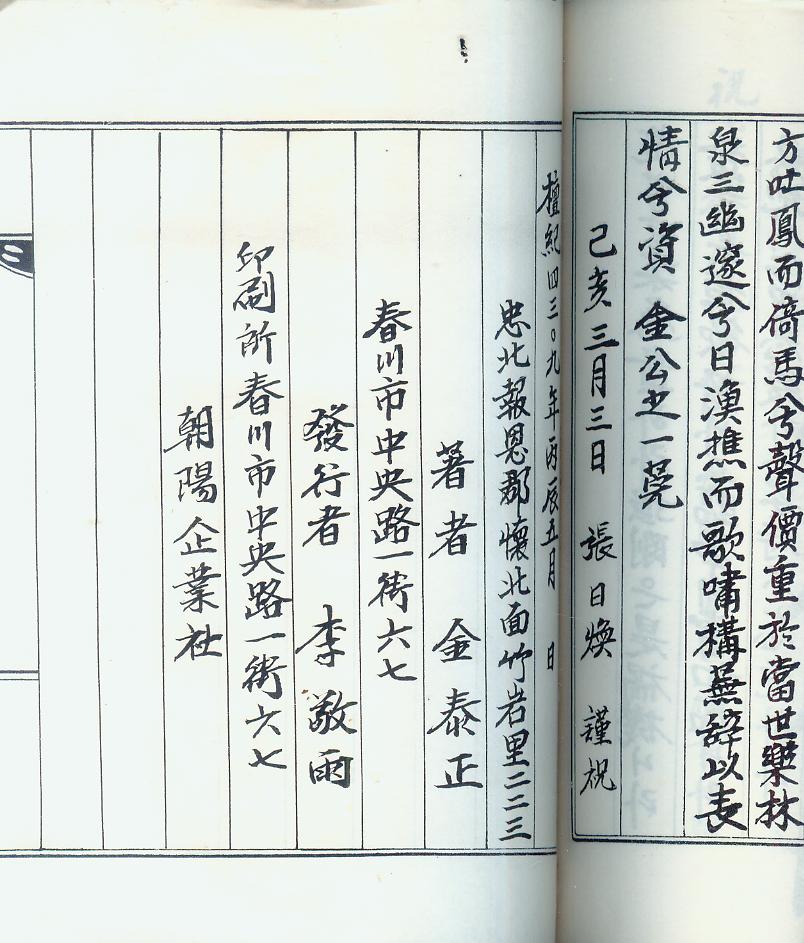 方吐鳳而倚馬兮聲價重於當世樂林
泉三幽邃兮日漁樵而歌嘯構蕪辭以表
情兮資金公之一莞
己亥三月三日 張日煥 謹祝
檀紀四三〇九年丙辰五月 日
忠北報恩郡懷北面竹岩里二二三
著者 金泰正
春川市中央路一街六七
發行者 李敬雨
印刷所春川市中央路一街六七
朝陽企業社